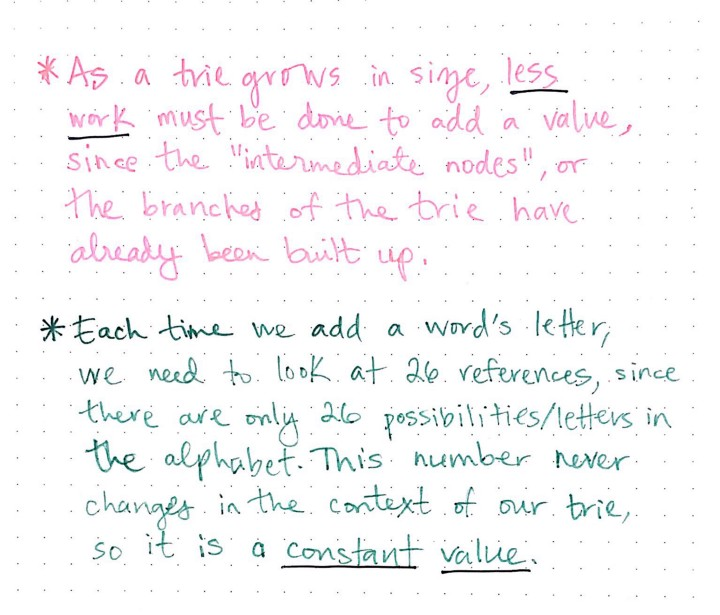 * As a trie grows in size, less
work must be done to add a value,
since the "intermediate nodes", or
the branches of the trie have
already been built up.
* Each time we add a word's letter,
we need to look at 26 references, since
there are only 26 possibilities/letters in
the alphabet. This number never
changes in the context of our trie,
so it is a constant value.